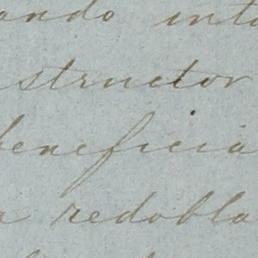 ando inte
structor
beneficia
a redobla